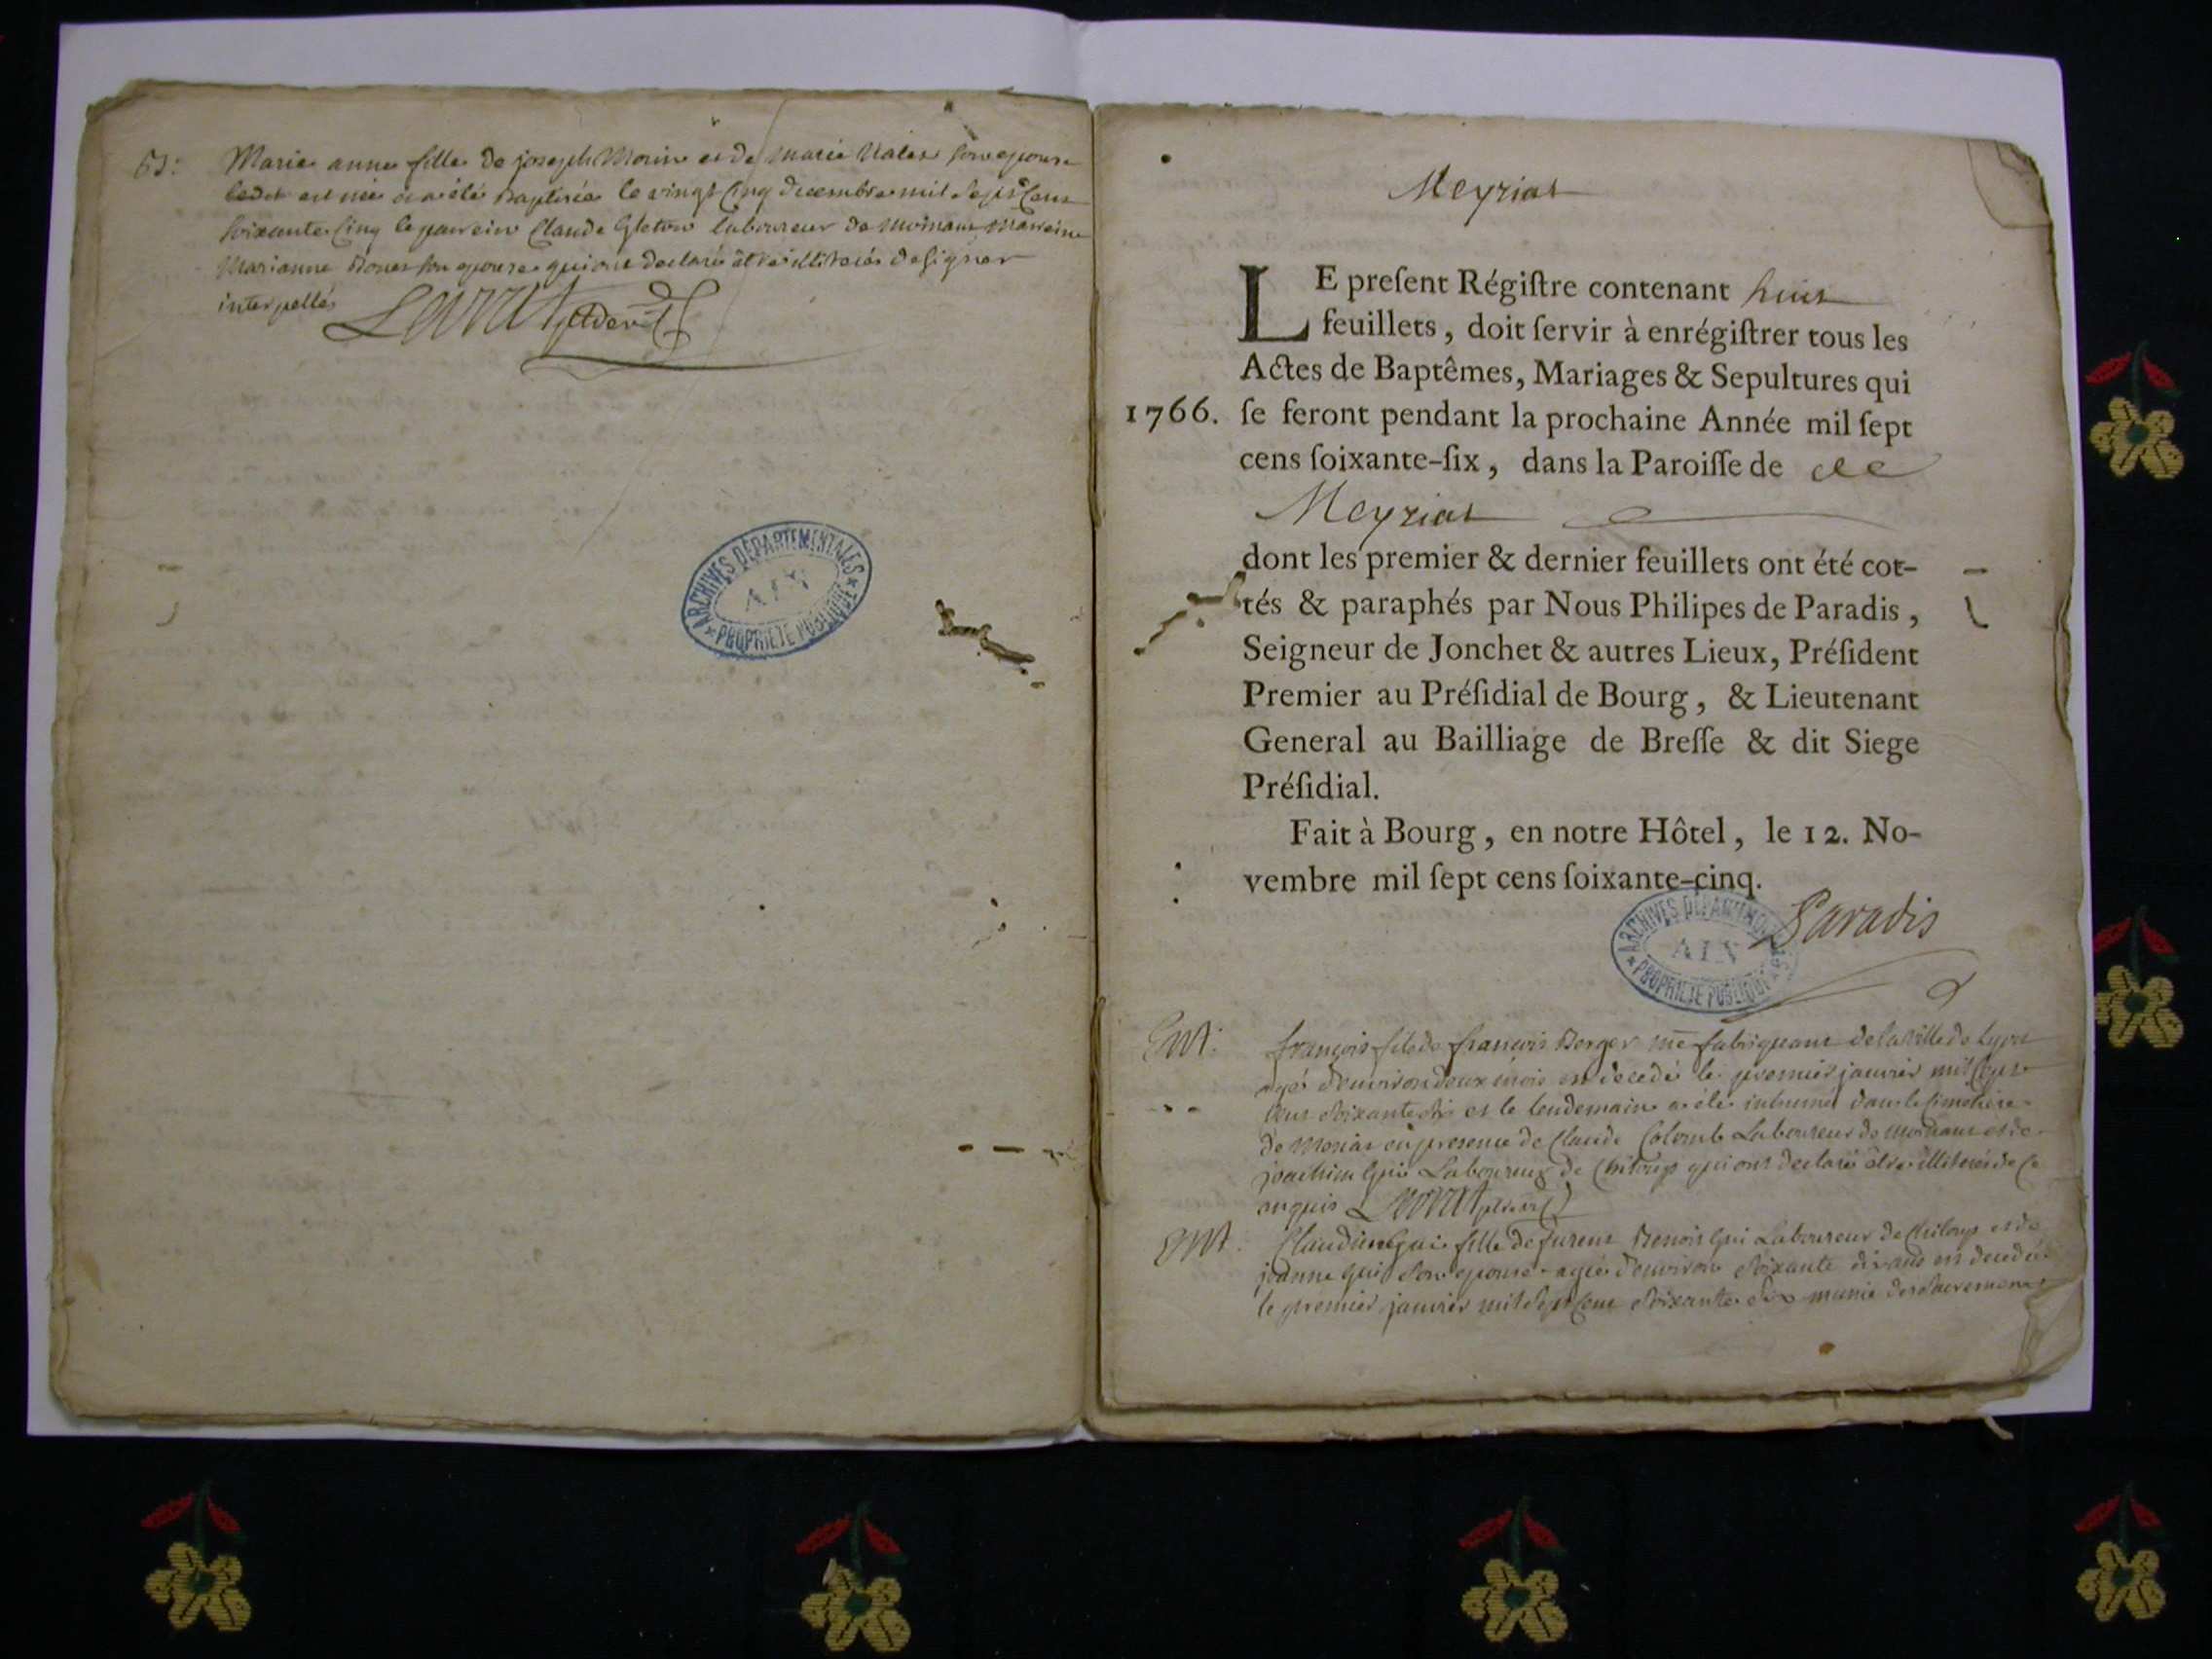 Marie anne fille de joseph Morin et de marie
est née et a été Baptisée le vingt Cinq decembre mil Sept Cent
soixante Cinq le parrein Claude laboureur de marreine
Marianne son epouse qui ont declaré être illiterés de signer
interpellés
ARCHIVES DÉPARTEMENTALES
AIN
PROPRIETE PUBLIQUE
Meyriat
LE preſent Régiſtre contenant huit
feuillets, doit ſervir à enrégiſtrer tous les
Actes de Baptêmes, Mariages & Sepultures qui
1766. ſe feront pendant la prochaine Année mil ſept
cens ſoixante-ſix, dans la Paroiſſe de de
Meyriat
dont les premier & dernier feuillets ont été cot-
tés & paraphés par Nous Philipes de Paradis,
Seigneur de Jonchet & autres Lieux, Préſident
Premier au Préſidial de Bourg, & Lieutenant
General au Bailliage de Breſſe & dit Siege
Préſidial.
Fait à Bourg, en notre Hôtel, le 12. No-
vembre mil ſept cens ſoixante-cinq.
Paradis
ARCHIVES DÉPARTEMENTALES
AIN
PROPRIETE PUBLIQUE
Ent. françois fils de francois Berger fabriqeant de la ville de Lyon
agé d'environ deux mois est decedé le premier janvier mil Sept
Cent soixante six et le lendemain a été inhumé dans le Cimetiere
de en presence de Claude Colomb Laboureur de et de
joachim Gui Laboureur de Chiloup qui ont declaré être illiterés de ce
enquis
Ent. Claudine Gui fille de furent Benoit Gui Laboureur de Chiloup et de
jeanne Gui son epouse agée d'environ soixante dix ans est decedée
le premier janvier mil Sept Cent soixante six munie des sacrements